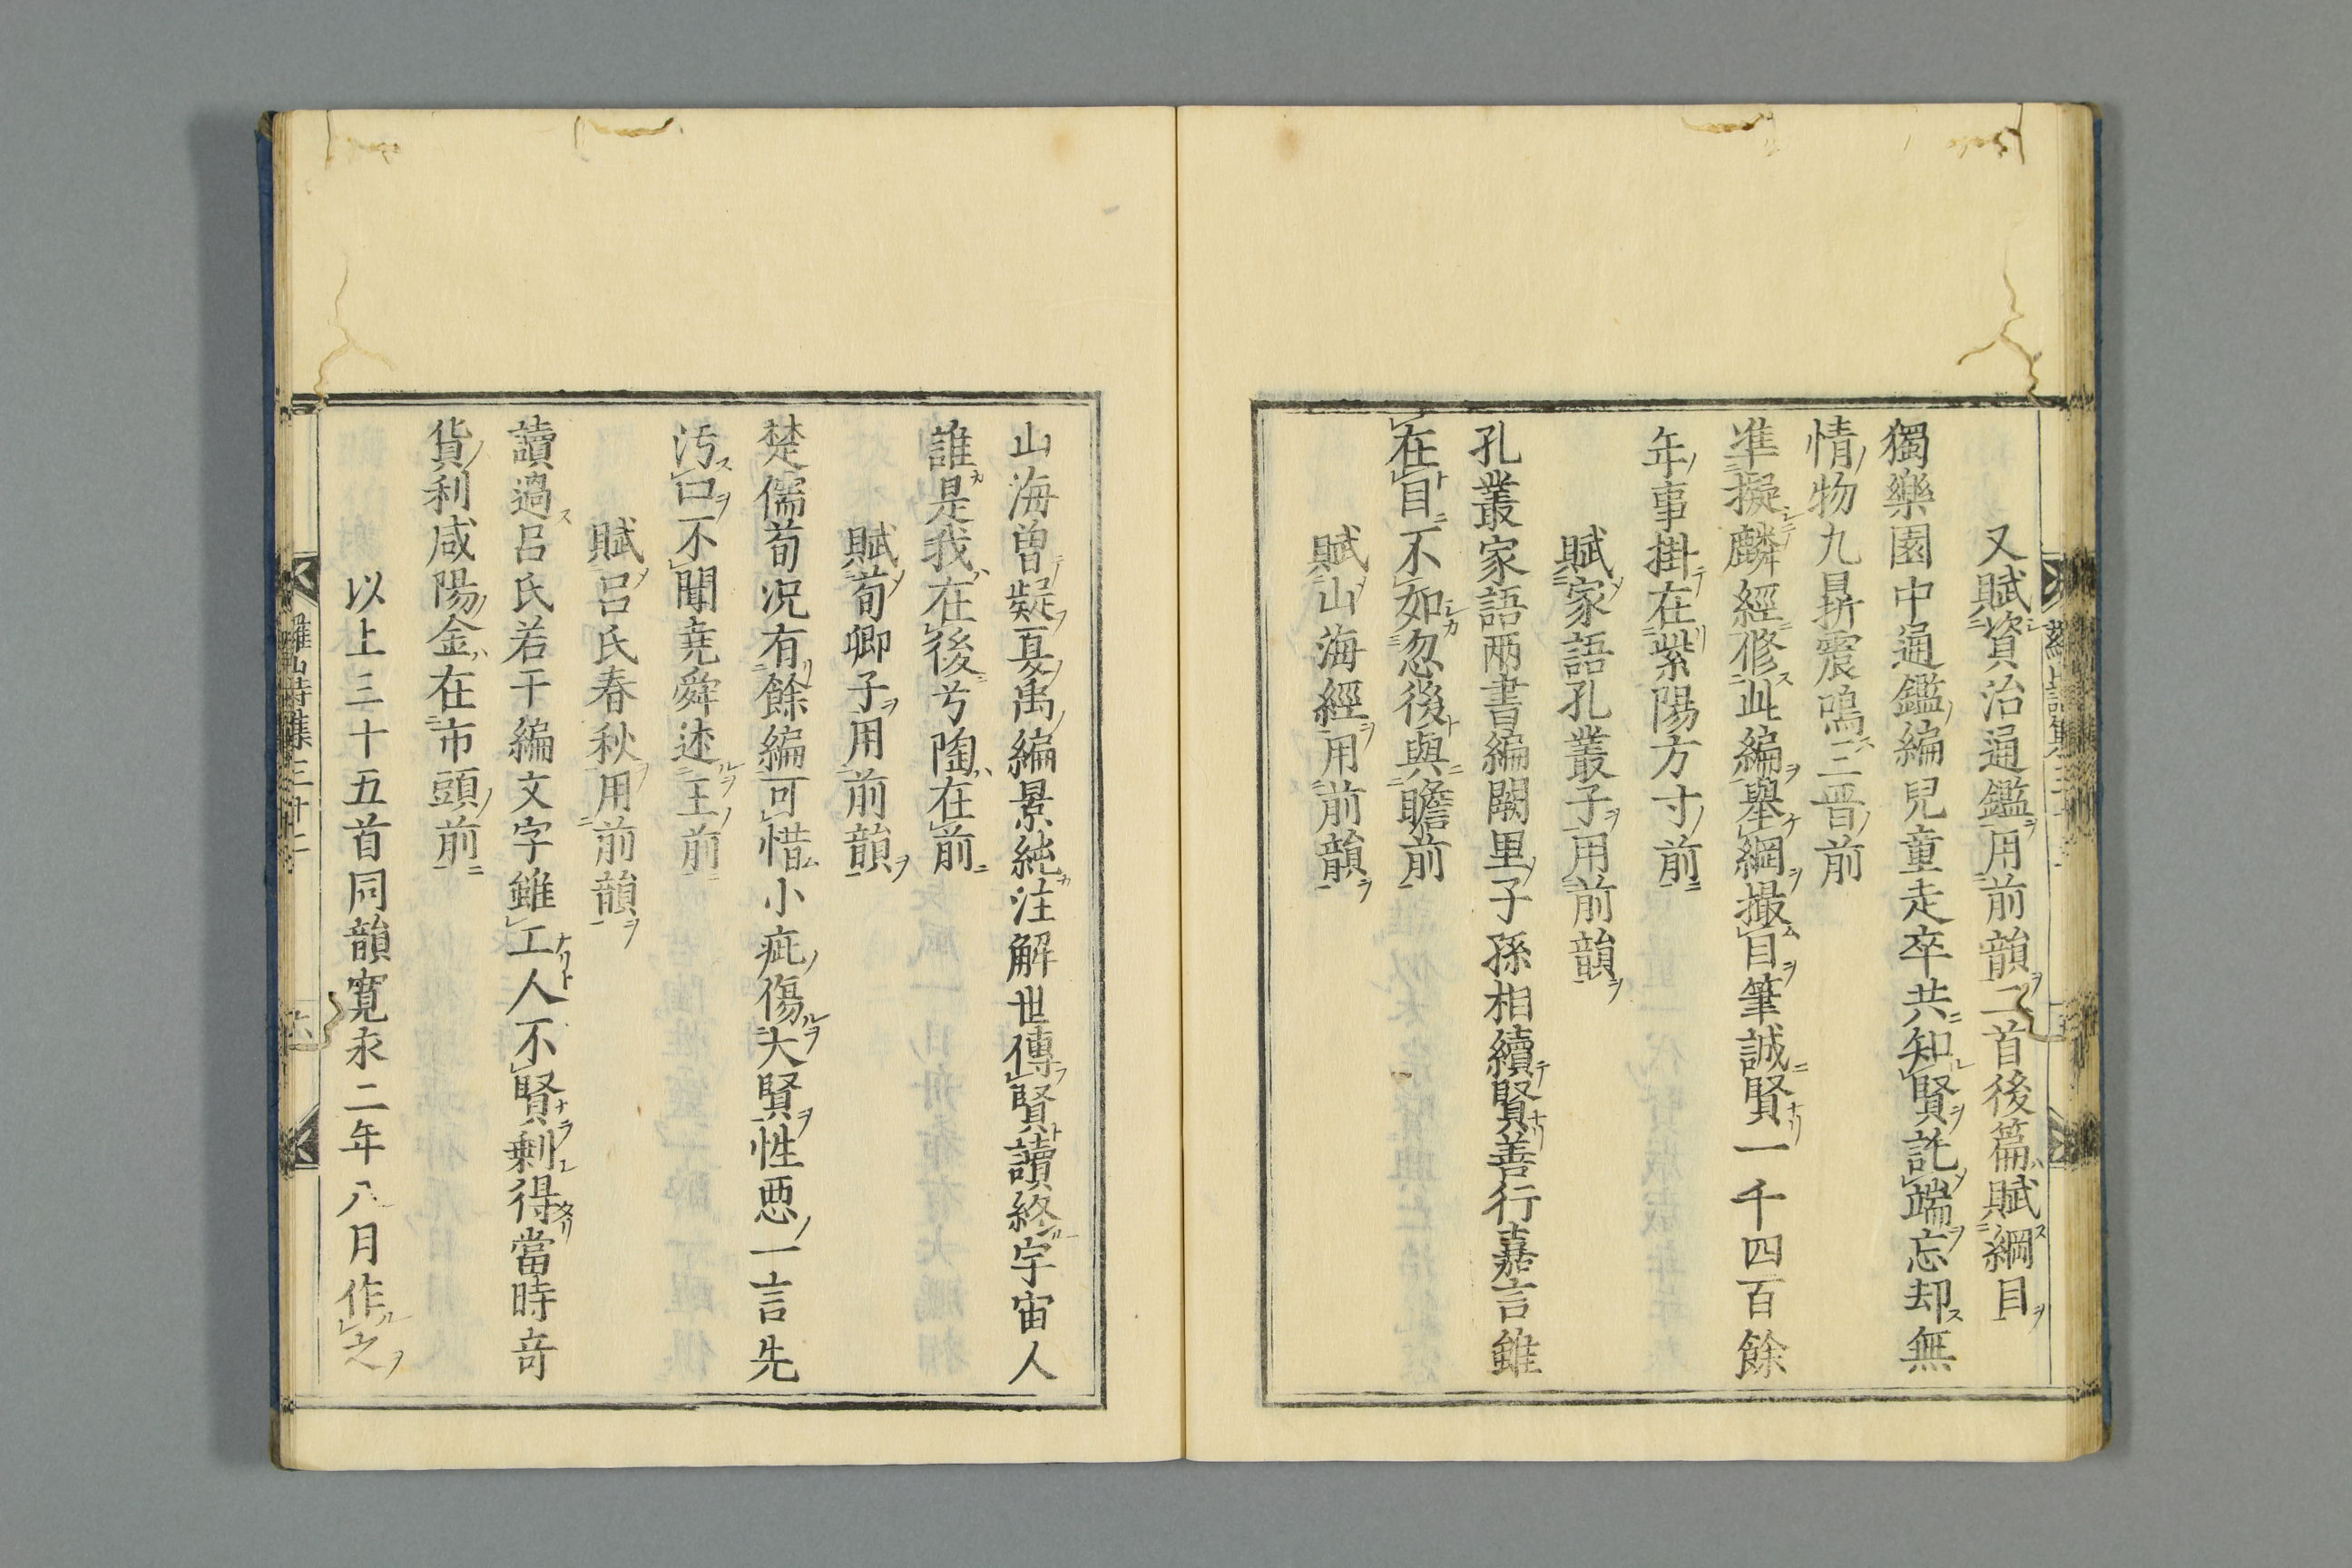 又賦資治通鑑用前韻二首後篇賦綱目
獨樂園中通鑑編兒童走卒共知賢託端忘却無
情物九鼎震鳴三晋前
準擬麟經修此編舉綱撮目筆誠賢一千四百餘
年事掛在紫陽方寸前
賦家語孔叢子用前韻
孔叢家語兩書編闕里子孫相續賢善行嘉言雖
在目不如忽後與瞻前
賦山海經用前韻
山海曽疑夏禹編景純注解世傳賢讀終宇宙人
誰是我在後兮陶在前
賦荀卿子用前韻
楚儒荀况有餘編可惜小疵傷大賢性惡一言先
汚口不聞堯舜述王前
賦呂氏春秋用前韻
讀過呂氏若干編文字雖工人不賢剩得當時奇
貨利咸陽金在市頭前
以上三十五首同韻寛永二年八月作之
羅山詩集三十二
六